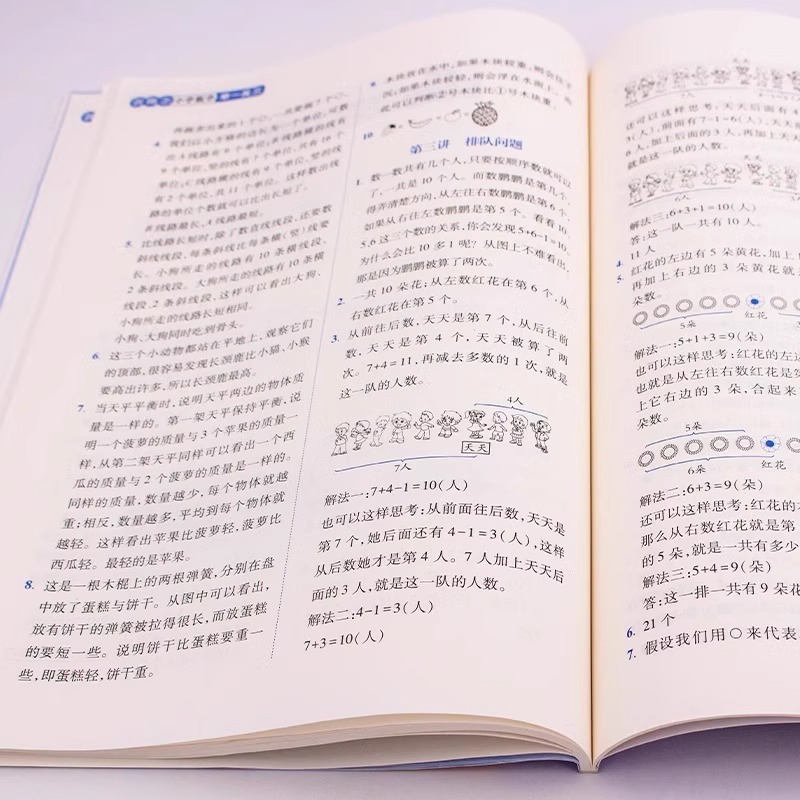 小学数学
再画出来的1个○,一共要画7个○。
4. 我们以小方格的边长为一个单位,可数
出A线路有8个单位;B线路横的线有
9个单位,竖的线有7个单位,共有16个
单位;C线路横的线有9个单位,竖的线
有2个单位,共11个单位。这样数出线
路的单位个数就可以比出长短了。
B线路最长,A线路最短。
5. 比线路长短时,除了数直线线段,还要数
斜线线段,每条斜线比每条横(竖)线要
长。小狗所走的线路有10条横线段、
2条斜线段。大狗所走的线路有10条横
线段、2条斜线段,这样可以看出大狗、
小狗所走的线路长短相同。
小狗、大狗同时吃到骨头。
6. 这三个小动物都站在平地上,观察它们
的顶部,很容易发现长颈鹿比小猫、小猴
要高出许多,所以长颈鹿最高。
7. 当天平平衡时,说明天平两边的物体质
量是一样的。第一架天平保持平衡,说
明一个菠萝的质量与3个苹果的质量一
样,从第二架天平同样可以看出一个西
瓜的质量与2个菠萝的质量是一样的。
同样的质量,数量越少,每个物体就越
重;相反,数量越多,平均到每个物体就
越轻。这样看出苹果比菠萝轻,菠萝比
西瓜轻。最轻的是苹果。
8. 这是一根木棍上的两根弹簧,分别在盘
中放了蛋糕与饼干。从图中可以看出,
放有饼干的弹簧被拉得很长,而放蛋糕
的要短一些。说明饼干比蛋糕要重一
些,即蛋糕轻,饼干重。
9. 木块放在水中,如果木块较重,则会往下
沉;如果木块较轻,则会浮在水面上。由
此可以判断②号木块比①号木块重。
10.
第三讲 排队问题
1. 数一数共有几个人,只要按顺序数就可以
了,一共是10个人。而数鹏鹏是第几个,
得弄清楚方向,从左往右数鹏鹏是第6个,
如果从右往左数鹏鹏是第5个。看看10、
5、6这三个数的关系,你会发现5+6-1=10,
为什么会比10多1呢?从图上不难看出,
那是因为鹏鹏被算了两次。
2. 一共10朵花;从左数红花在第6个,从
右数红花在第5个。
3. 从前往后数,天天是第7个,从后往前
数,天天是第4个,天天被算了两
次。7+4=11,再减去多数的1次,就是
这一队的人数。
4人
天天
7人
解法一:7+4-1=10(人)
也可以这样思考:从前面往后数,天天是
第7个,她后面还有4-1=3(人),这样
从后数她才是第4人。7人加上天天后
面的3人,就是这一队的人数。
解法二:4-1=3(人)
7+3=10(人)
天天
7人
还可以这样思考:天天后面有4
3(人),前面有7-1=6(人),天天
6人,加上后面的3人,再加上天天
就是这一队的人数。
天天
6人
解法三:6+3+1=10(人)
答:这一队一共有10人。
4. 11人
5. 红花的左边有5朵黄花,加上
再加上右边的3朵黄花就是
朵数。
5朵
红花
解法一:5+1+3=9(朵)
也可以这样思考:红花的左边
也就是从左往右数红花是第
上它右边的3朵,合起来
朵数。
5朵
6朵
红花
解法二:6+3=9(朵)
还可以这样思考:红花的
那么从右数红花就是第
的5朵,就是一共有多少
解法三:5+4=9(朵)
答:这一排一共有9朵花
6. 21个
7. 假设我们用○来代表